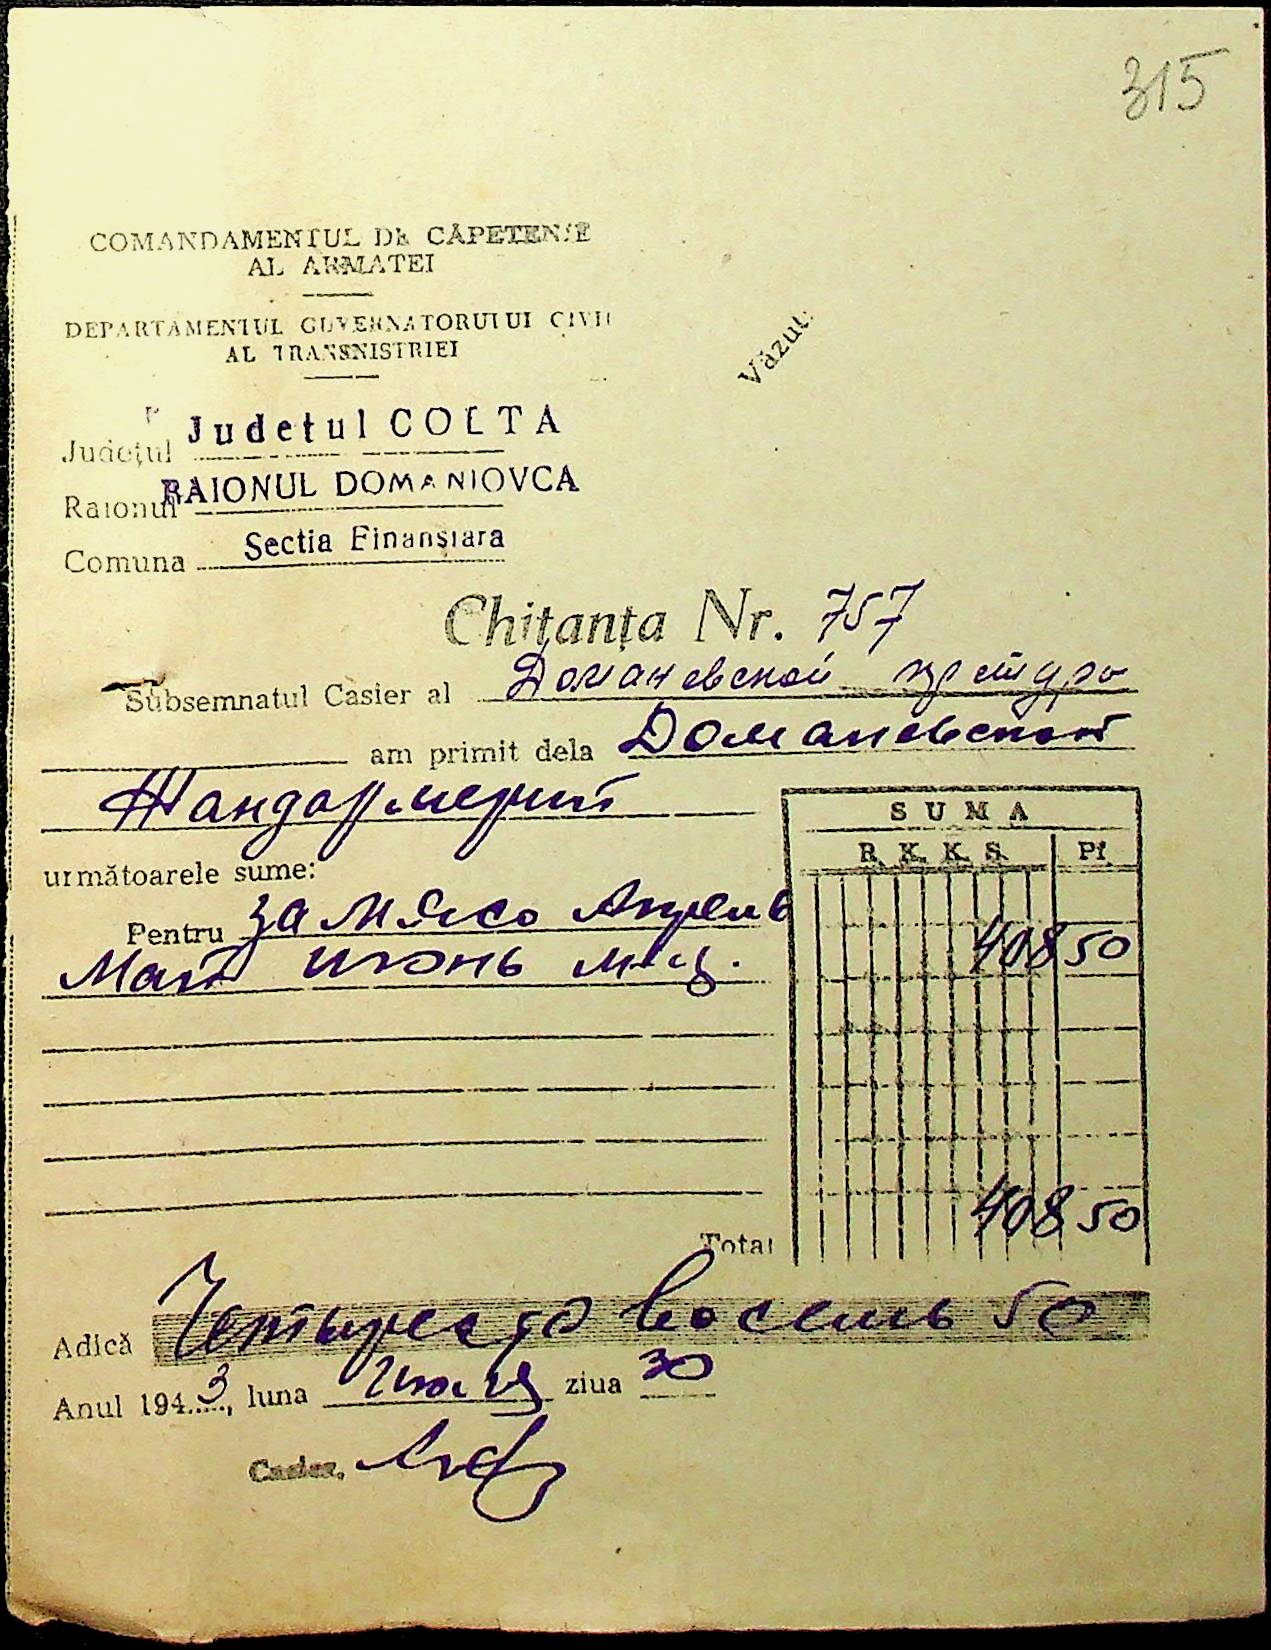 315
COMANDAMENTUL DE CAPETENIE
AL ARMATEI
DEPARTAMENTUL GUVERNATORULUI CIVIL
AL TRANSNISTRIEI
Văzut:
Județul Judetul COLTA
Raionul RAIONUL DOMANIOVCA
Comuna Sectia Finansiara
Chitanța Nr. 757
Subsemnatul Casier al Доманевской претуры
am primit dela Доманевской
Жандармерий
următoarele sume:
SUMA
R. K. K. S. Pf.
Pentru За Мясо Апрель
408 50
Май июнь м-ц.
Total 408 50
Adică Четыреста восемь 50
Anul 1943, luna Июля ziua 30
Casier,